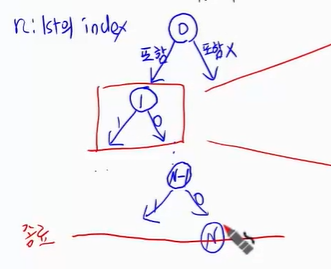 n: lst의 index
0
포함 포함X
1
1 0
N-1
1 0
종료
N